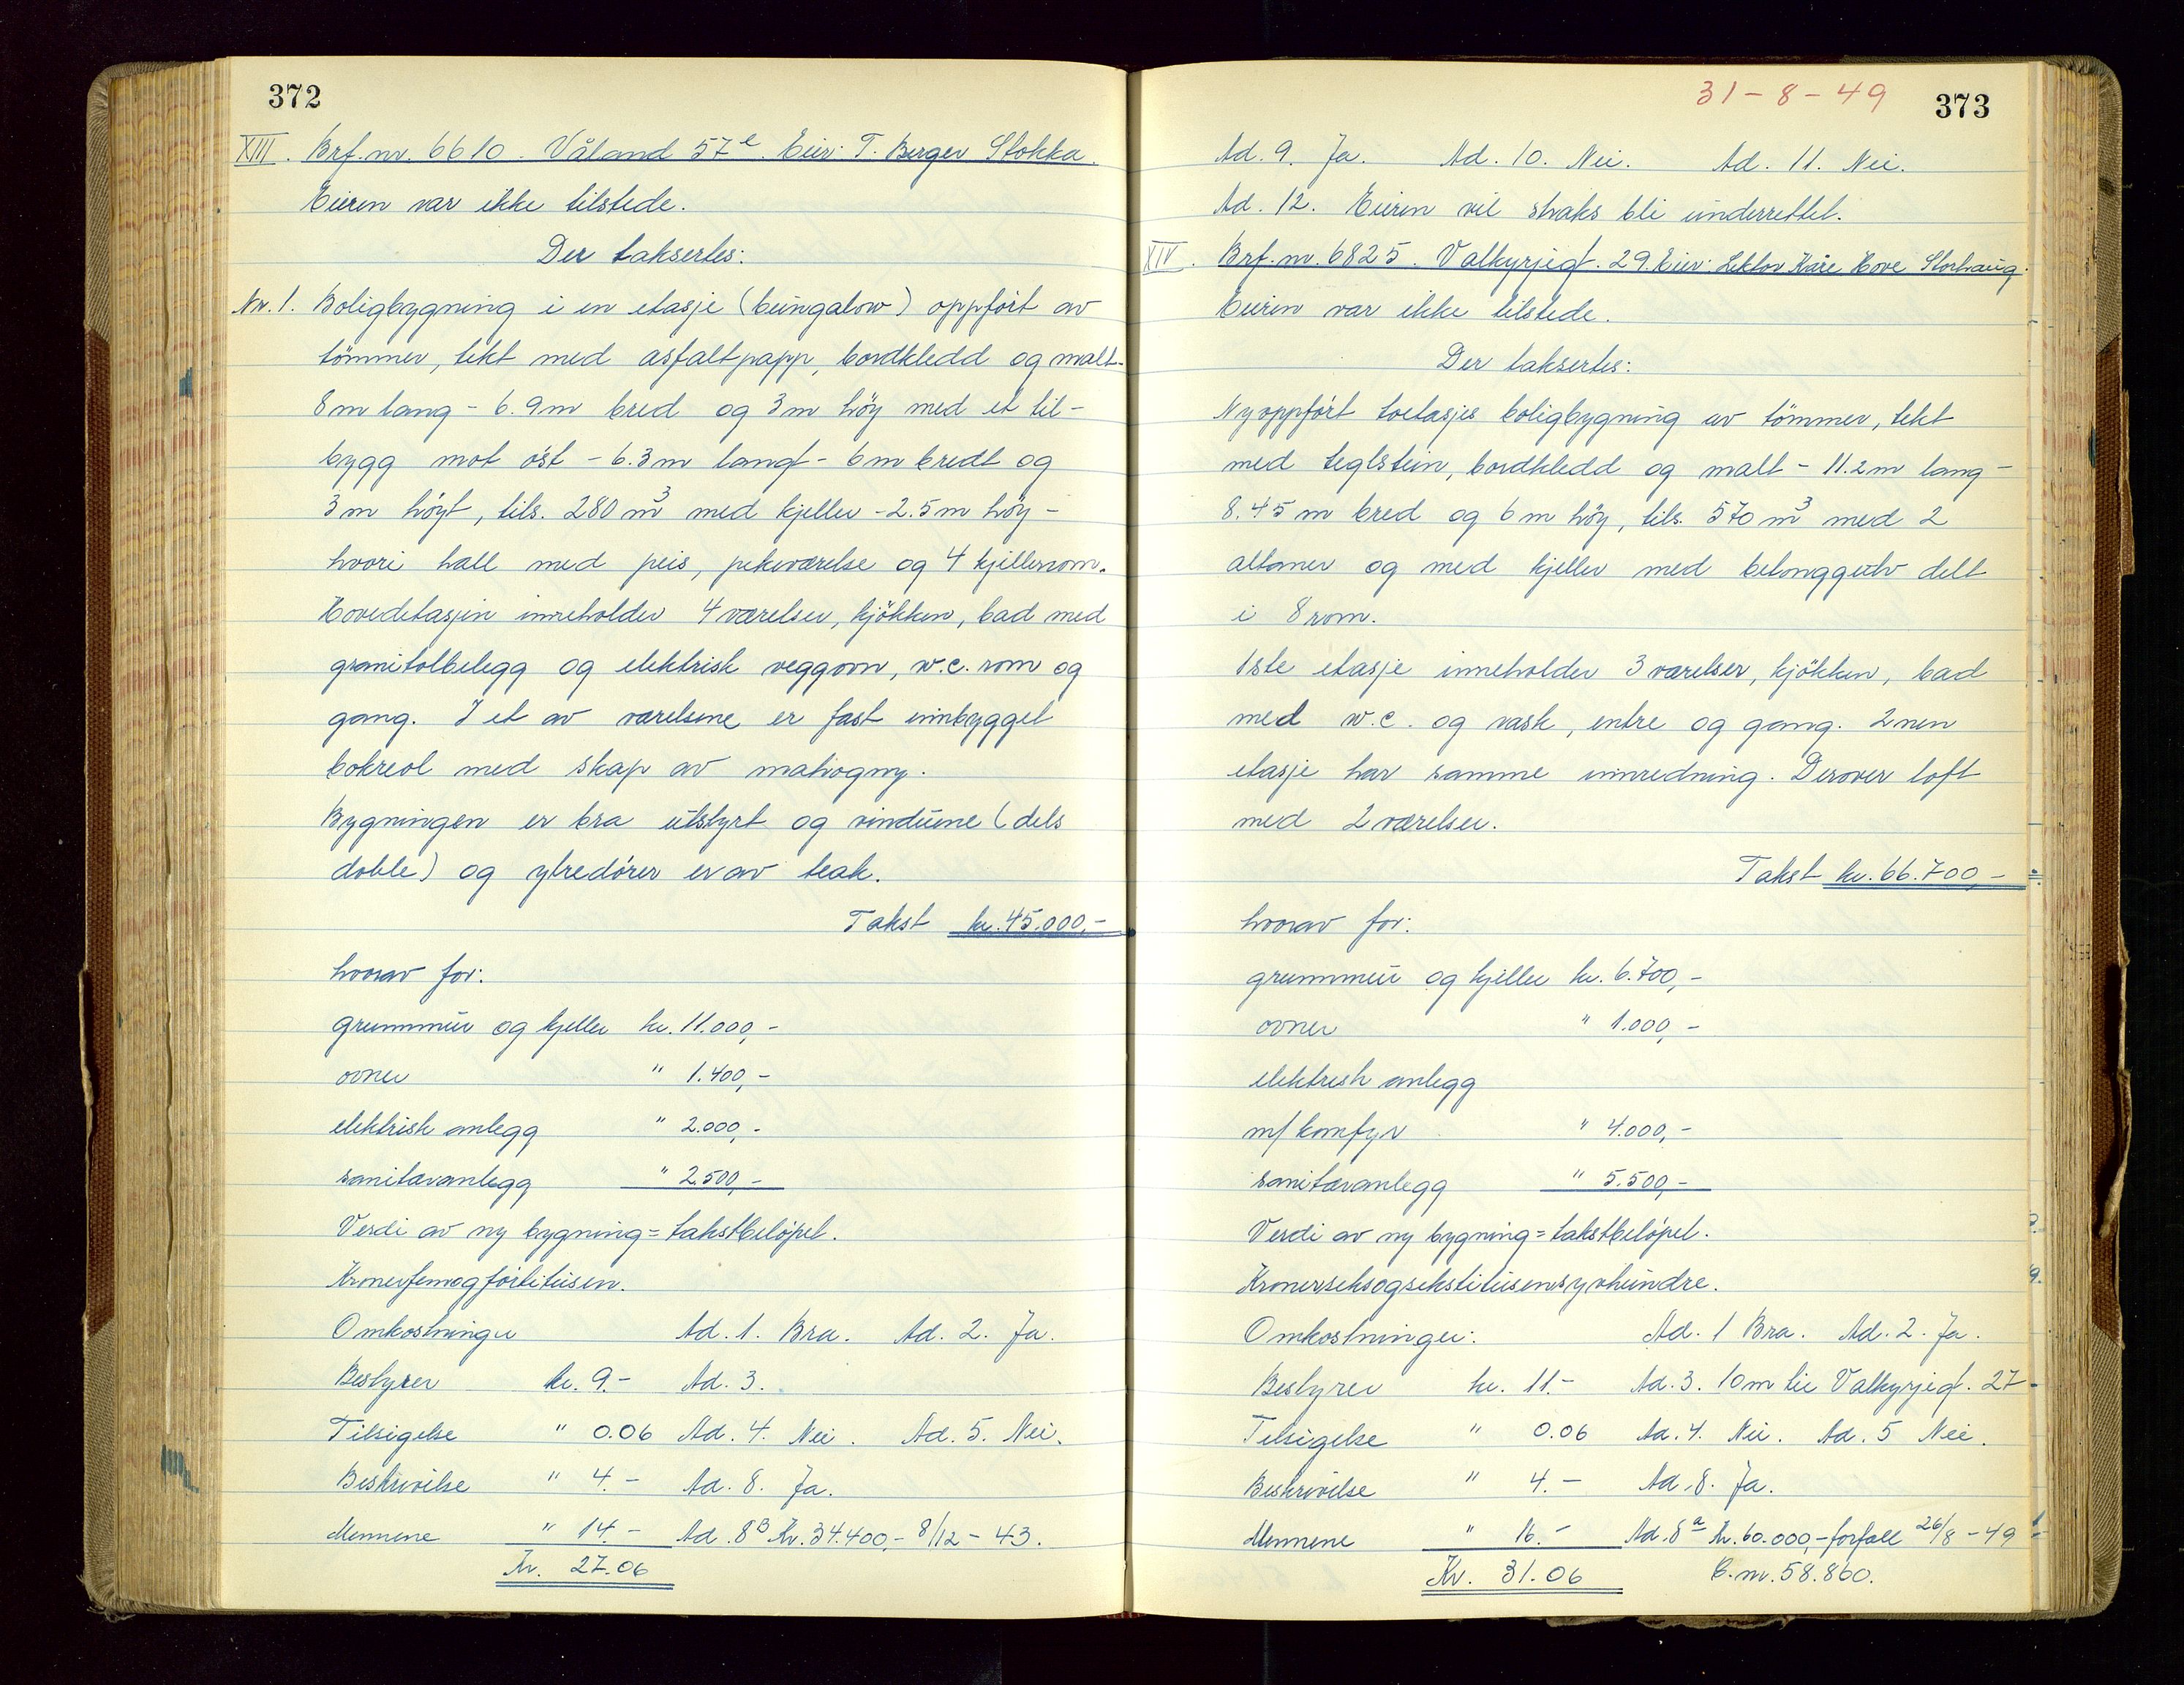 372
XIII. Brf.nr. 6610. Våland 57e. Eier: T. Berger Stokka.
Eieren var ikke tilstede.
Der taksertes:
Nr. 1. Boligbygning i en etasje (bungalow) oppført av
tømmer, tekt med asfaltpapp, bordkledd og malt-
8m lang - 6.9m bred og 3m høy med et til-
bygg mot øst - 6.3m langt - 6m bredt og
3m høyt, tils. 280 m³ med kjeller - 2.5m høy -
hvori hall med peis, pikeværelse og 4 kjellerrom.
Hovedetasjen inneholder 4 værelser, kjøkken, bad med
granitolbelegg og elektrisk veggovn, w.c. rom og
gang. I et av værelsene er fast innbygget
bokreol med skap av mahogny.
Bygningen er bra utstyrt og vinduene (dels
doble) og ytredører er av teak.
Takst kr. 45.000,-
hvorav for:
grunnmur og kjeller kr. 11.000,-
ovner " 1.400,-
elektrisk anlegg " 2.000,-
sanitæranlegg " 2.500,-
Verdi av ny bygning = takstbeløpet.
Kronerfemogførtitusen.
Omkostninger Ad. 1. Bra. Ad. 2. Ja.
Bestyrer kr. 9.- Ad. 3.
Tilsigelse " 0.06 Ad. 4. Nei. Ad. 5. Nei.
Beskrivelse " 4.- Ad. 8. Ja.
Mennene " 14.- Ad. 8B Kr. 34.400,- 8/12 - 43.
Kr. 27.06
31-8-49 373
Ad. 9. Ja. Ad. 10. Nei. Ad. 11. Nei.
Ad. 12. Eieren vil straks bli underrettet.
XIV. Brf.nr. 6825. Valkyrjegt. 29. Eier: Lektor Kåre Hove Storhaug.
Eieren var ikke tilstede.
Der taksertes:
Nyoppført toetasjes boligbygning av tømmer, tekt
med teglstein, bordkledd og malt - 11.2m lang -
8.45 m bred og 6m høy, tils. 570 m³ med 2
altaner og med kjeller med betonggulv delt
i 8 rom.
1ste etasje inneholder 3 værelser, kjøkken, bad
med w.c. og vask, entre og gang. 2nen
etasje har samme innredning. Derover loft
med 2 værelser.
Takst kr. 66.700,-
hvorav for:
grunnmur og kjeller kr. 6.700,-
ovner " 1.000,-
elektrisk anlegg
m/ komfyr " 4.000,-
sanitæranlegg " 5.500,-
Verdi av ny bygning = takstbeløpet.
Kronerseksogsekstitusensyvhundre.
Omkostninger: Ad. 1 Bra. Ad. 2. Ja.
Bestyrer kr. 11.- Ad. 3. 10m til Valkyrjegt. 27
Tilsigelse " 0.06 Ad. 4. Nei. Ad. 5 Nei.
Beskrivelse " 4.- Ad. 8. Ja.
Mennene " 16.- Ad. 8a Kr. 60.000,- forfall 26/8 - 49
Kr. 31.06 B.nr. 58.860.